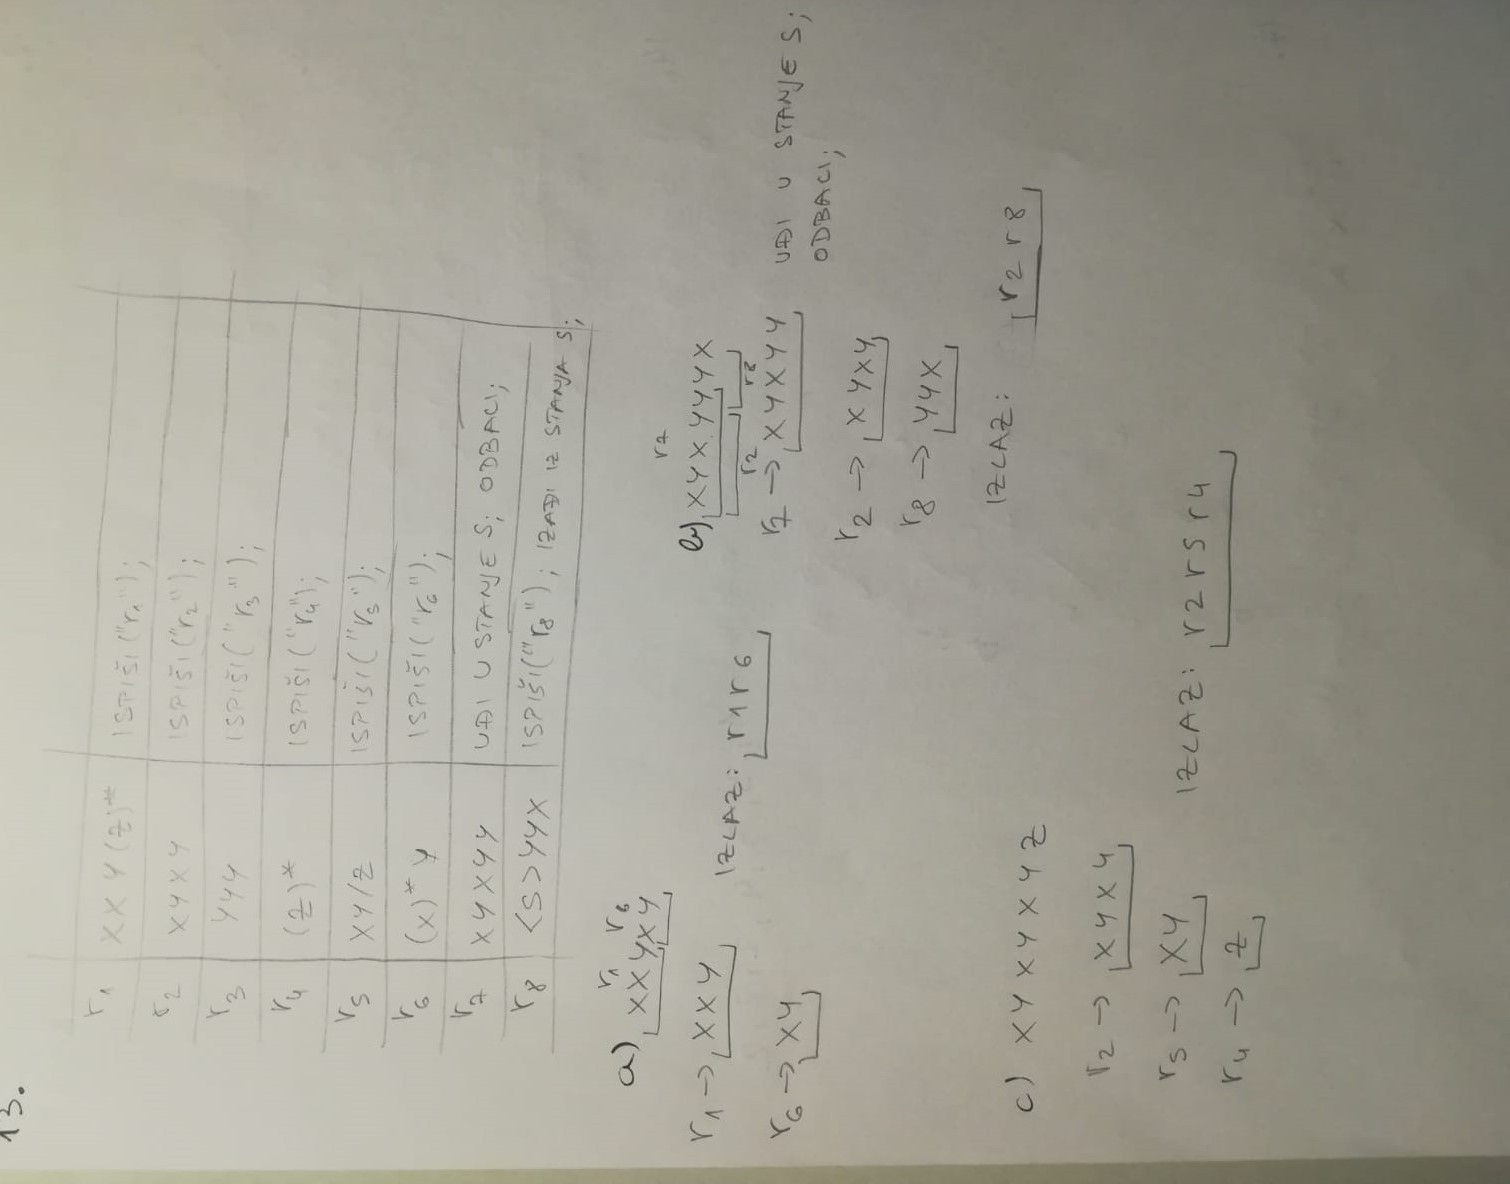 13.
r1 XXY(Z)* ISPIŠI("r1");
r2 XYXY ISPIŠI("r2");
r3 YYY ISPIŠI("r3");
r4 (Z)* ISPIŠI("r4);
r5 XY/Z ISPIŠI("r5");
r6 (X)* Y ISPIŠI("r6");
r7 XYXYY UĐI U STANJE S; ODBACI;
r8 <S>YYX ISPIŠI("r8"); IZAĐI IZ STANJA S;
r1 r6
a) XXYXY
r1 → XXY
IZLAZ: r1r6
r6 → XY
r7
b) XYXYYYX
r2 r8
r7 → XYXYY UĐI U STANJE S;
ODBACI;
r2 → XYXY
r8 → YYX
IZLAZ: r2r8
c) XYXYXYZ
r2 → XYXY
r5 → XY
IZLAZ: r2r5r4
r4 → Z